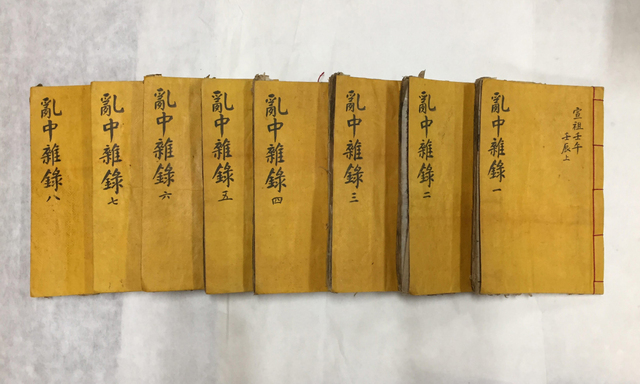 宣祖壬午
壬辰上
亂中雜錄一
亂中雜錄二
亂中雜錄三
亂中雜錄四
亂中雜錄五
亂中雜錄六
亂中雜錄七
亂中雜錄八